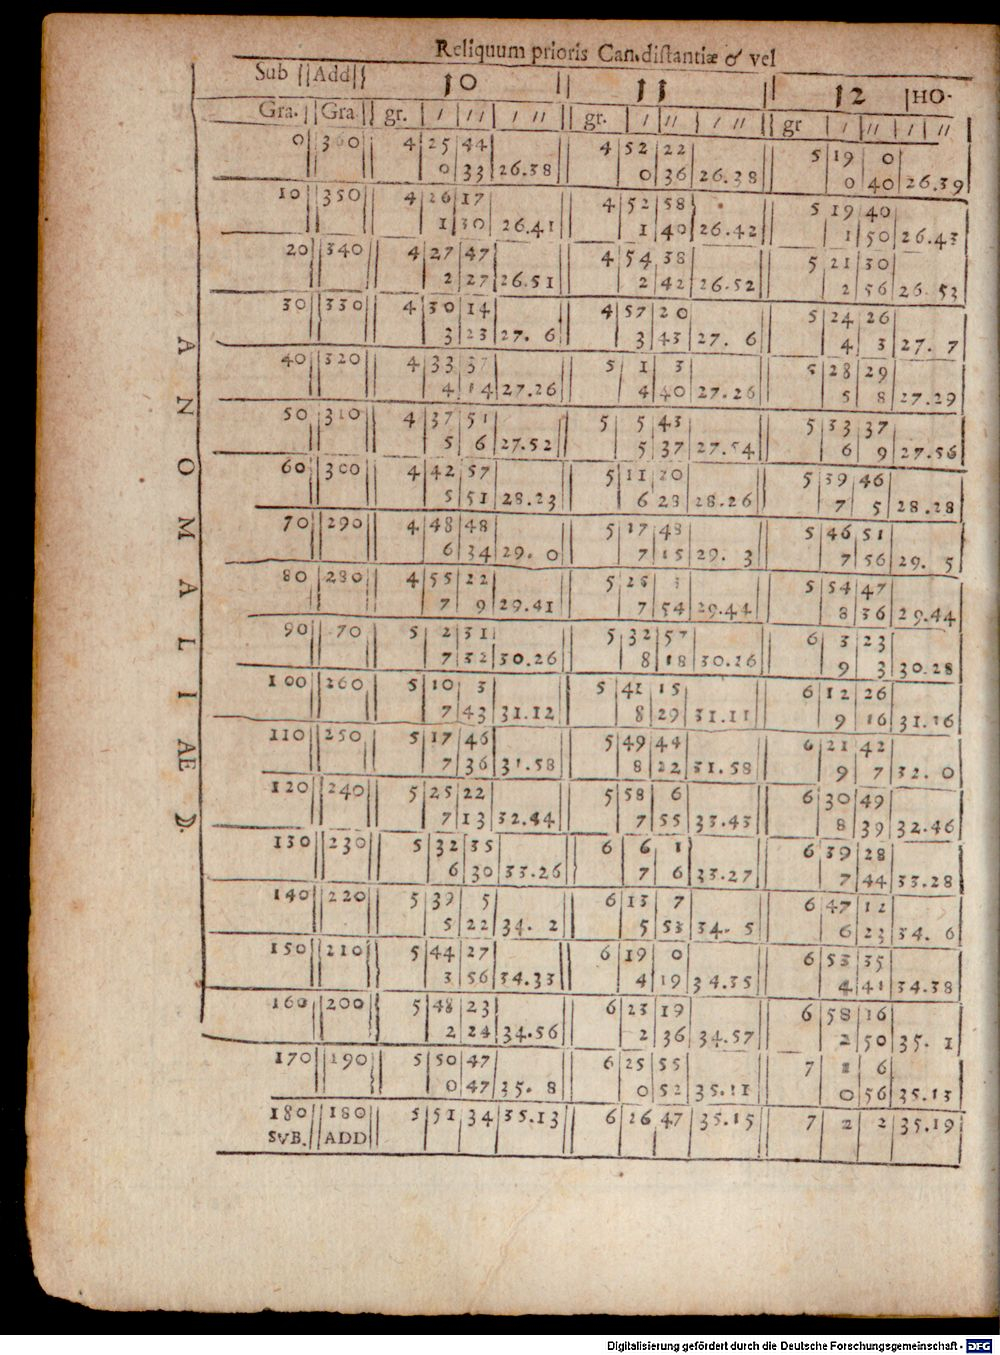 Reliquum prioris Can. distantiæ & vel
Sub || Add || 10 || 11 || 12 | HO-
Gra. || Gra || gr. | / | // | / // || gr. | / | // | / // || gr | / | // | / | //
0 || 360 || 4 | 25 | 44 || 4 | 52 | 22 || 5 | 19 | 0
0 | 33 | 26.38 || 0 | 36 | 26.38 || 0 | 40 | 26.39
10 || 350 || 4 | 26 | 17 || 4 | 52 | 58 || 5 | 19 | 40
1 | 30 | 26.41 || 1 | 40 | 26.42 || 1 | 50 | 26.43
20 || 340 || 4 | 27 | 47 || 4 | 54 | 38 || 5 | 21 | 30
2 | 27 | 26.51 || 2 | 42 | 26.52 || 2 | 56 | 26.53
30 || 330 || 4 | 30 | 14 || 4 | 57 | 20 || 5 | 24 | 26
3 | 23 | 27. 6 || 3 | 43 | 27. 6 || 4 | 3 | 27. 7
40 || 320 || 4 | 33 | 37 || 5 | 1 | 3 || 5 | 28 | 29
4 | 14 | 27.26 || 4 | 40 | 27.26 || 5 | 8 | 27.29
50 || 310 || 4 | 37 | 51 || 5 | 5 | 43 || 5 | 33 | 37
5 | 6 | 27.52 || 5 | 37 | 27.54 || 6 | 9 | 27.56
60 || 300 || 4 | 42 | 57 || 5 | 11 | 20 || 5 | 39 | 46
5 | 51 | 28.23 || 6 | 28 | 28.26 || 7 | 5 | 28.28
70 || 290 || 4 | 48 | 48 || 5 | 17 | 48 || 5 | 46 | 51
6 | 34 | 29. 0 || 7 | 15 | 29. 3 || 7 | 56 | 29. 5
80 || 280 || 4 | 55 | 22 || 5 | 25 | 3 || 5 | 54 | 47
7 | 9 | 29.41 || 7 | 54 | 29.44 || 8 | 36 | 29.44
90 || 70 || 5 | 2 | 31 || 5 | 32 | 57 || 6 | 3 | 23
7 | 32 | 30.26 || 8 | 18 | 30.26 || 9 | 3 | 30.28
100 || 260 || 5 | 10 | 3 || 5 | 41 | 15 || 6 | 12 | 26
7 | 43 | 31.12 || 8 | 29 | 31.11 || 9 | 16 | 31.16
110 || 250 || 5 | 17 | 46 || 5 | 49 | 44 || 6 | 21 | 42
7 | 36 | 31.58 || 8 | 22 | 31.58 || 9 | 7 | 32. 0
120 || 240 || 5 | 25 | 22 || 5 | 58 | 6 || 6 | 30 | 49
7 | 13 | 32.44 || 7 | 55 | 33.43 || 8 | 39 | 32.46
130 || 230 || 5 | 32 | 35 || 6 | 6 | 1 || 6 | 39 | 28
6 | 30 | 33.26 || 7 | 6 | 33.27 || 7 | 44 | 33.28
140 || 220 || 5 | 39 | 5 || 6 | 13 | 7 || 6 | 47 | 12
5 | 22 | 34. 2 || 5 | 53 | 34. 5 || 6 | 23 | 34. 6
150 || 210 || 5 | 44 | 27 || 6 | 19 | 0 || 6 | 53 | 35
3 | 56 | 34.33 || 4 | 19 | 34.35 || 4 | 41 | 34.38
160 || 200 || 5 | 48 | 23 || 6 | 23 | 19 || 6 | 58 | 16
2 | 24 | 34.56 || 2 | 36 | 34.57 || 2 | 50 | 35. 1
170 || 190 || 5 | 50 | 47 || 6 | 25 | 55 || 7 | 1 | 6
0 | 47 | 35. 8 || 0 | 52 | 35.11 || 0 | 56 | 35.13
180 || 180 || 5 | 51 | 34 | 35.13 || 6 | 26 | 47 | 35.15 || 7 | 2 | 2 | 35.19
SVB. || ADD
ANOMALIAE ☽.
Digitalisierung gefördert durch die Deutsche Forschungsgemeinschaft - DFG